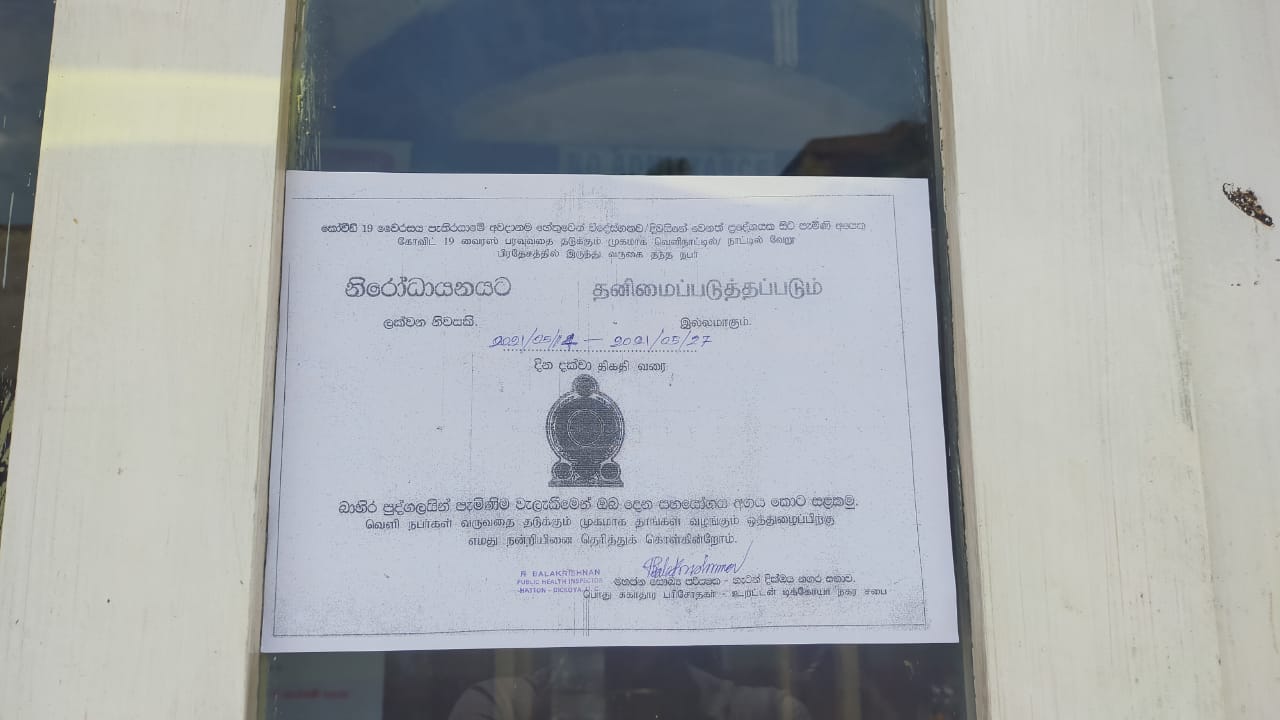 කෝවිඩ් 19 වෛරසය පැතිරයාමේ අවදානම හේතුවෙන් විදේශගතව/දිවයිනේ වෙනත් ප්‍රදේශයක සිට පැමිණි අයෙකු
கோவிட் 19 வைரஸ் பரவுவதை தடுக்கும் முகமாக வெளிநாட்டில்/ நாட்டில் வேறு
பிரதேசத்தில் இருந்து வருகை தந்த நபர்
නිරෝධායනයට தனிமைப்படுத்தப்படும்
ලක්වන නිවසකි. இல்லமாகும்.
2021/05/14 — 2021/05/27
දින දක්වා திகதி வரை
බාහිර පුද්ගලයින් පැමිණීම වැලැකීමෙන් ඔබ දෙන සහයෝගය අගය කොට සළකමු.
வெளி நபர்கள் வருவதை தடுக்கும் முகமாக தாங்கள் வழங்கும் ஒத்துழைப்பிற்கு
எமது நன்றியினை தெரித்துக் கொள்கின்றோம்.
R BALAKRISHNAN
PUBLIC HEALTH INSPECTOR
HATTON - DICKOYA
මහජන සෞඛ්‍ය පරීක්ෂක - හැටන් දික්ඔය නගර සභාව.
பொது சுகாதார பரிசோதகர் - உறட்டன் டிக்கோயா நகர சபை